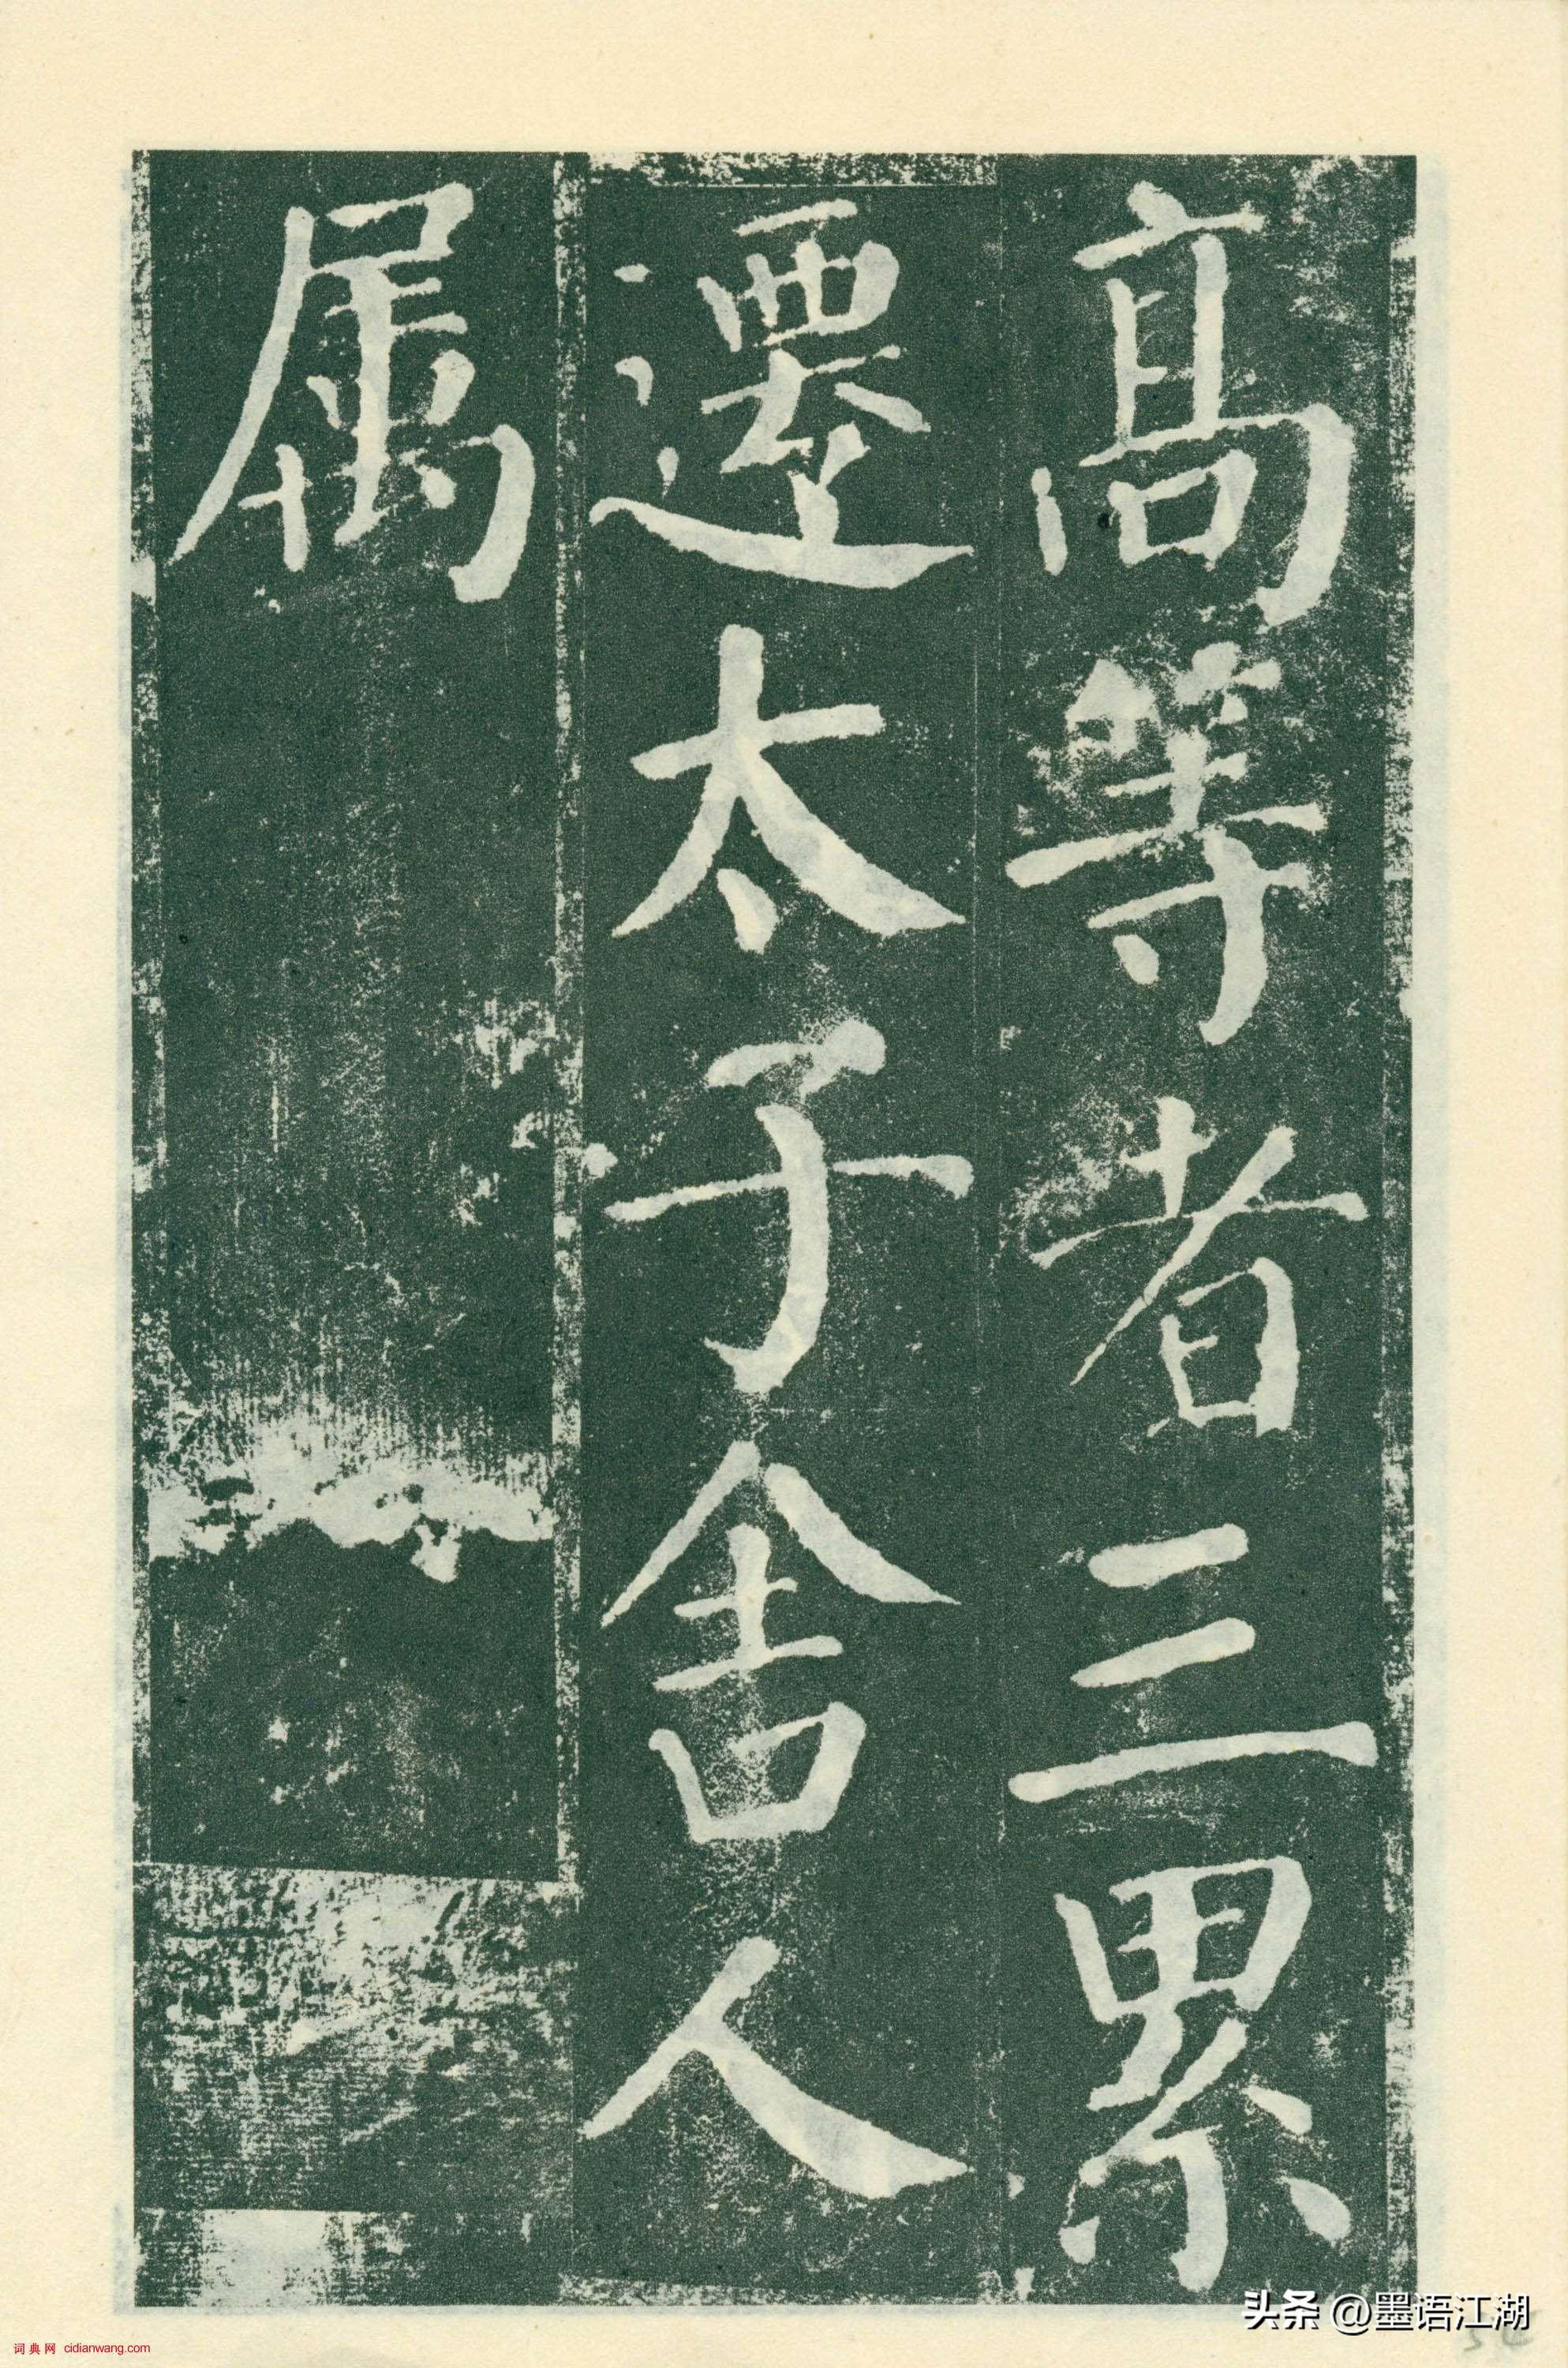 髙等者三累
遷太子舍人
属
头条 @墨语江湖
词典网 cidianwang.com